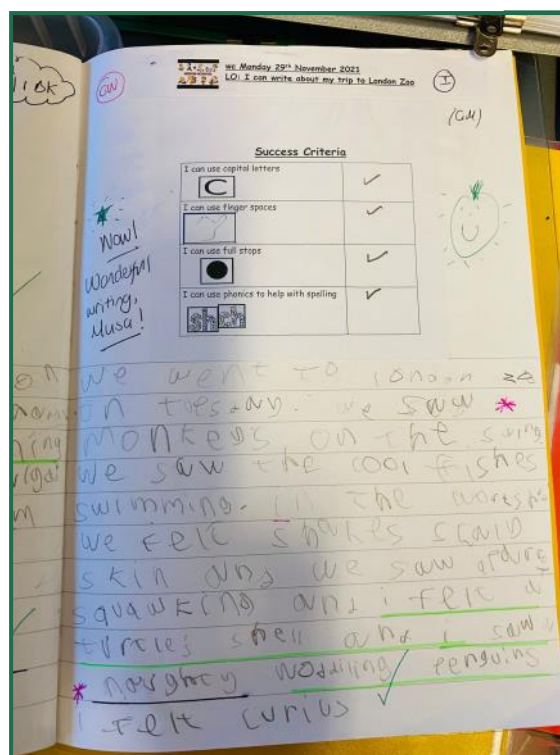 wc Monday 29th November 2021
LO: I can write about my trip to London Zoo
I
GW
(GM)
Success Criteria
I can use capital letters
C
I can use finger spaces
I can use full stops
I can use phonics to help with spelling
sh ch
Wow!
Wonderful
writing,
Musa!
we went to london
on tuesday. we saw
monkeys on the swing
we saw the cool fishes
swimming. in the
we felt snakes
skin and we saw
squawking and i felt a
turtles shell and i saw
noughty woddiling penguins
i felt curius